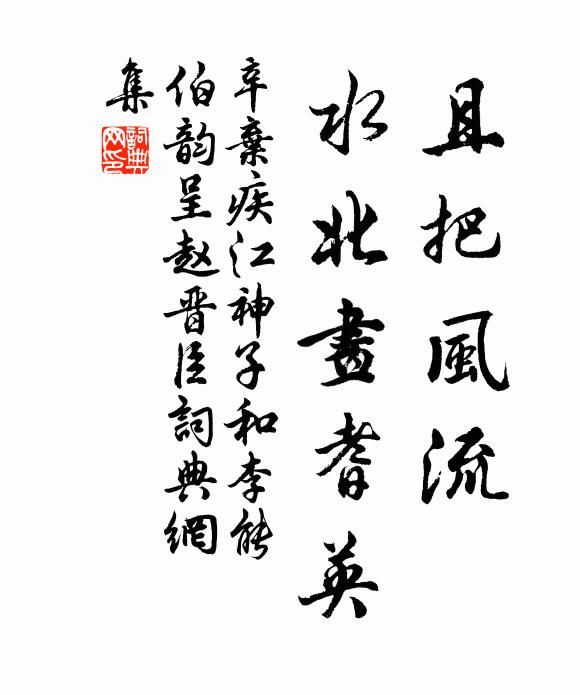 且把風流
水北畫耆英
辛棄疾江神子和李能
伯韵呈赵晋臣詞典網
集
詞典
网印